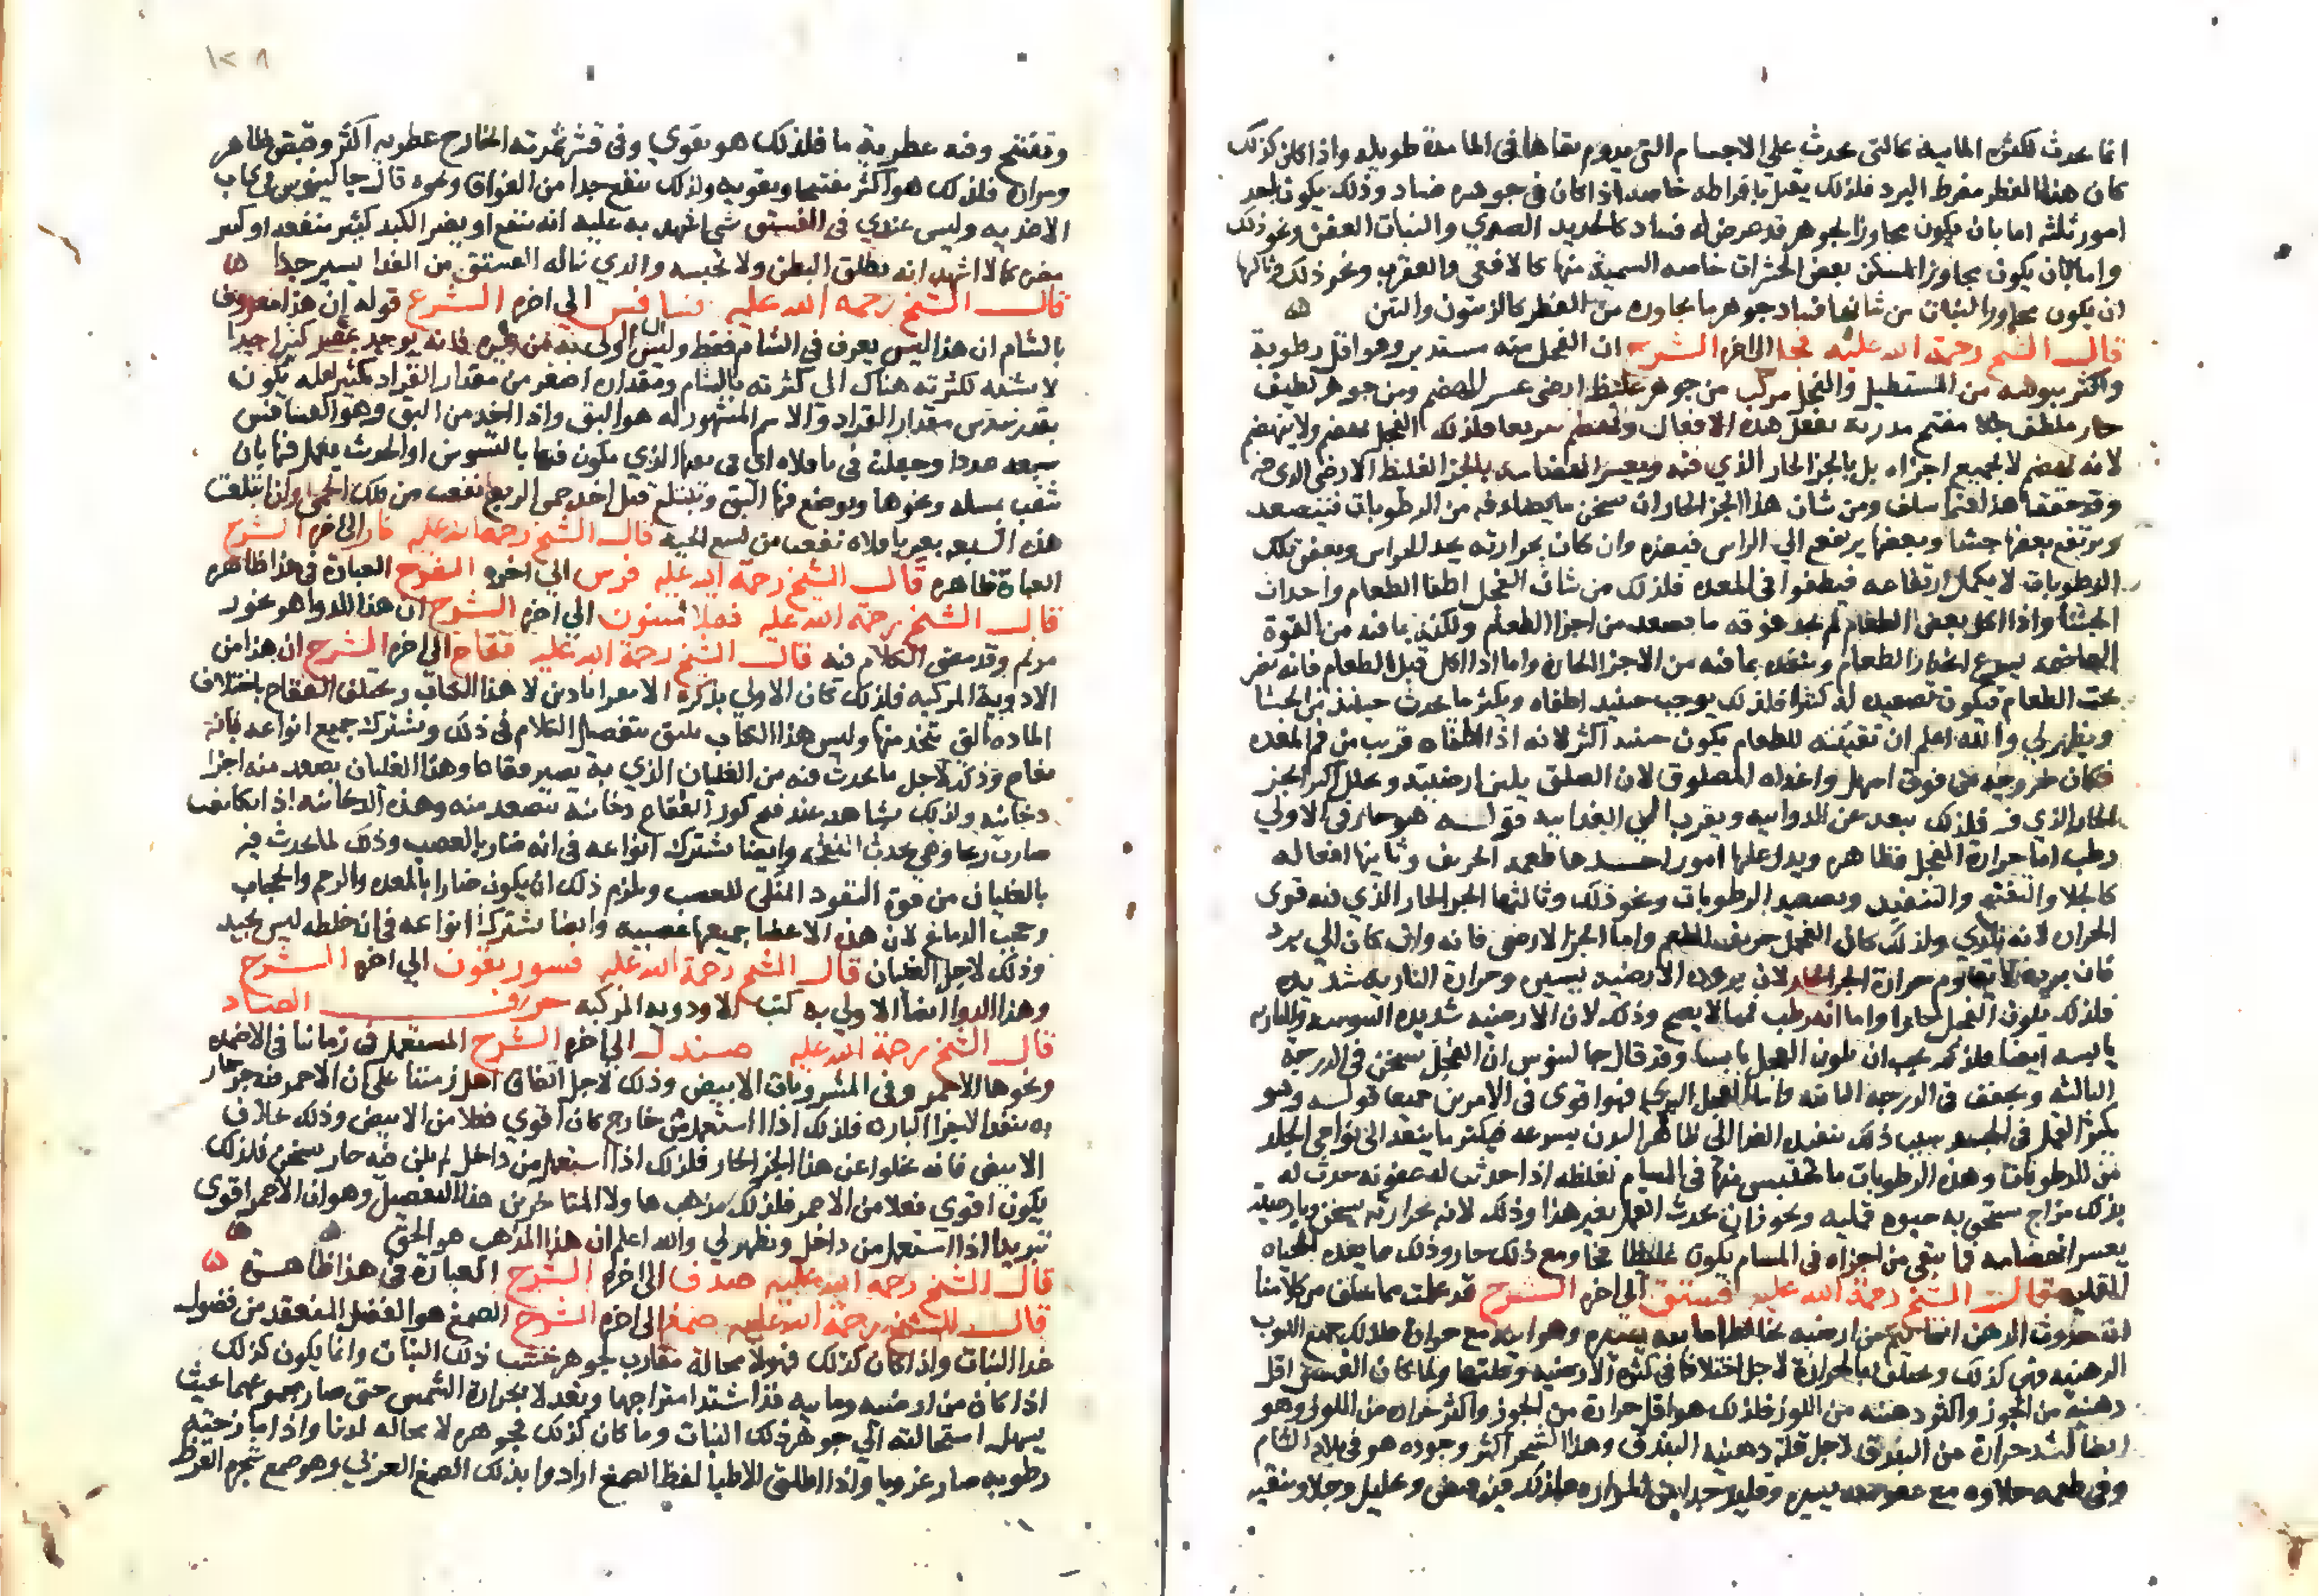 انما يحدث لكثره المائيه كالتى تحدث علي الاجسام التى يدوم بقاها في الما مدة طويله واذا كان كذلك
كان هذا الفطر مفرط البرد فلذلك يقتل بافراطه خاصه اذا كان في جوهره فساد وذلك يكون لاحد
امور ثلثه اما بان يكون مجاور الجوهر قد عرض له فساد كالحديد الصدي والنبات العفن ونحو ذلك
واما بان يكون مجاور المسكن بعض الحشرات خاصه السمية منها كالافعى والعقرب ونحو ذلك وثالثها
ان يكون مجاور النبات من شانها فساد جوهر ما يجاوره من الفطر كالزيتون والتين
قال الشيخ رحمة الله عليه فجل الى اخره الشرح ان الفجل منه مستدير وهو اقل رطوبة
واكثر يبوسه من المستطيل والفجل مركب من جوهر غليظ ارضى عسر الهضم ومن جوهر لطيف
حار ملطف جلا مفتح مدر به يفعل هذه الافعال وينهضم سريعا فلذلك الفجل يهضم ولا ينهضم
لانه يهضم لا بجميع اجزاه بل بالجزء الحار الذي فيه ويعسر انهضامه بالجزء الغليظ الارضى الذى فيه
وقد حققنا هذا فيما سلف ومن شان هذا الجزء الحار ان يسخن ما يصادفه من الرطوبات فيتصعد
ويرتفع بعضها جشا وبعضها يرتفع الي الراس فيضره وان كان بحرارته يحد للراس وبعض تلك
الرطوبات لا يكمل ارتفاعه فيطفوا في المعده فلذلك من شان الفجل اطفا الطعام واحداث
الجشا واذا اكل بعض الطعام لم يجد فوقه ما يصعد من اجزا الطعام ولكنه بما فيه من القوة
الهاضمه يسرع انحدار الطعام وينفذه بما فيه من الاجزا الحاره واما اذا اكل قبل الطعام فانه يصير
تحت الطعام فيكون تصعيده له كثيرا فلذلك يوجب حينيذ اطفاه ويكثر ما يحدث حينيذ من الجشا
ويظهر لي والله اعلم ان تقيئته للطعام يكون حينيذ اكثر لانه اذا اطفاه قريب من فم المعده
فكان خروجه من فوق اسهل واغذاه المصلوق لان الصلق يلين ارضيته ويحلل اكثر الجزء
الحار الذي فيه فلذلك يبعد عن الدوائيه ويقرب الي الغدائيه قوله هو حار في الاولي
رطب اما حرارة الفجل فظاهره ويدل عليها امور احدها طعمه الحريف وثانيها افعاله
كالجلا والتفتيح والتنفيذ وتصعيد الرطوبات ونحو ذلك وثالثها الجزء الحار الذي فيه قوى
الحراره لانه ناري ولذلك كان الفجل حريف الطعم واما الجزء الارضى فانه وان كان الي برد
فان برده لا يقاوم حرارة الجزء الحار لان برودة الارضيه يسير وحرارة الناريه شديده
فلذلك يكون الفجل حارا واما انه رطب فمما لا يصح وذلك لان الارضيه شديدة اليبوسه والناريه
يابسه ايضا فلذلك يجب ان يكون الفجل يابسا وقد قال جالينوس ان الفجل يسخن في الدرجة
الثالثه ويجفف في الدرجه الثانيه واما الفجل البري فهو اقوى في الامرين جميعا قوله وهو
يكثر القمل في الجسد بسبب ذلك تنفيذ الغذا الى ظاهر البدن بسرعه فيكثر ما ينفذ الى نواحي الجلد
من الرطوبات وهذه الرطوبات ما تحتبس منها في المسام لغلظه اذا حدثت له عفونه حدث له
بذلك مزاج يستحق به حيوه قمليه ويجوز ان يحدث القمل بغير هذا وذلك لانه بحرارته يسخن وبارضيته
يعسر انهضامه فما يبقى من اجزاه في المسام يكون غليظا ومع ذلك حار وذلك مما يعده لحياه
القمليه قال الشيخ رحمة الله عليه فستق الى اخره الشرح قد علمت مما سلف من كلامنا
ان حدوث الدهن انما يتم من ارضيه يخالطها مائيه يسيره وهوائيه مع حراره فلذلك جميع اللبوب
الدهنيه فهى كذلك ويختلف بالحرارة لاجل اختلافها في كثرة الارضيه وقلتها ولما كان الفستق اقل
دهنية من الجوز واكثر دهنيه من اللوز فلذلك هو اقل حرارة من الجوز واكثر حراره من اللوز وهو
ايضا اشد حرارة من البندق لاجل قلة دهنيه البندق وهذا الشجر اكثر وجوده هو في بلاد الشام
وفي طعمه حلاوه مع عفوصه يسيره وقليل جدا من المراره فلذلك فيه قبض وتحليل وجلا وتنقيه
١٢٨
وتفتيح وفيه عطرية ما فلذلك هو يقوي وفى قشر ثمرته الخارج عطريه اكثر وقبض ظاهر
ومراره فلذلك هو اكثر تفتيحا وتقويه ولذلك ينفع جدا من الفواق ونحوه قال جالينوس في كتاب
الاغذيه وليس عندي في الفستق شى اشهد به عليه انه ينفع او يضر الكبد كبير منفعه او كبير
مضره كما لا اشهد انه يطلق البطن ولا يحبسه والذي يناله الفستق من الغدا يسير جدا
قال الشيخ رحمه الله عليه فسافس الي اخره الشرح قوله ان هذا معروف
بالشام ان هذا ليس يعرف في الشام فقط وليس الشام اولى به من غيره فانه يوجد بمصر كثيرا جدا
لا نسبه لكثرته هناك الي كثرته بالشام ومقداره اصغر من مقدار القراد بكثير لعله يكون
بقدر سدس مقدار القراد والاسم المشهور له هو البق واذا اخذ من البق وهو الفسافس
سبعه عددا وجعلت في باقلاه اي في موضعها الذي يكون فيها بالتسويس او الحرث يعمل فيها بان
تثقب بمسله ونحوها ويوضع فيها البق وتبتلع قبل اخذ حمى الربع نفعت من تلك الحمى وان ابتلعت
هذه السبعه بغير باقلاه نفعت من لسع الحية قال الشيخ رحمه الله عليه فار الى اخره الشرح
العبارة ظاهره قال الشيخ رحمة الله عليه فرس الي اخره الشرح العبارة في هذا ظاهره
قال الشيخ رحمة الله عليه فملاسنون الي اخره الشرح ان هذا الدوا هو بخور
مريم وقد مضى الكلام فيه قال الشيخ رحمة الله عليه فقاع الى اخره الشرح ان هذا من
الادوية المركبه فلذلك كان الاولي بذكره الاقراباذين لا هذا الكتاب ويختلف الفقاع باختلاف
الماده التى يتخذ منها وليس هذا الكتاب يليق بتفصيل الكلام في ذلك وتشترك جميع انواعه فانه
نفاخ وذلك لاجل ما يحدث فيه من الغليان الذي به يصير فقاعا وهذا الغليان يصعد منه اجزا
دخانيه ولذلك يشاهد عند فتح كوز الفقاع دخانيه تتصعد منه وهذه الدخانيه اذا تكاثفت
صارت ريحا وهي تحدث النفخه وايضا تشترك انواعه في انه ضار بالعصب وذلك لما يحدث فيه
بالغليان من قوة النفود المنكى للعصب ويلزم ذلك ان يكون ضارا بالمعده والرحم والحجاب
وحجب الدماغ لان هذه الاعضا جميعها عصبيه وايضا تشترك انواعه في ان خلطه ليس بجيد
وذلك لاجل الغليان قال الشيخ رحمة الله عليه فسوريقون الي اخره الشرح
وهذا الدوا ايضا الاولي به كتب الادويه المركبه حرف الصاد
قال الشيخ رحمة الله عليه صندل الى اخره الشرح المستعمل في زماننا في الاضمده
ونحوها الاحمر وفي المشروبات الابيض وذلك لاجل اتفاق اهل زمننا على ان الاحمر فيه جزء حار
به ينفذ الاجزا البارده فلذلك اذا استعمل من خارج كان اقوي فعلا من الابيض وذلك بخلاف
الابيض فانه يخلوا عن هذا الجزء الحار فلذلك اذا استعمل من داخل لم يكن فيه حار يسخن فلذلك
يكون اقوي فعلا من الاحمر فلذلك مذهب هاولا المتاخرين هذا التفصيل وهو ان الاحمر اقوى
تبريدا اذا استعمل من داخل ويظهر لي والله اعلم ان هذا المذهب هو الحق
قال الشيخ رحمه الله عليه صدف الى اخره الشرح العبارة في هذا ظاهرة
قال الشيخ رحمة الله عليه صمغ الى اخره الشرح الصمغ هو الفضل المنعقد من فضول
غدا النبات واذا كان كذلك فهو لا محالة مقارب لجوهر خشب ذلك النبات وانما يكون كذلك
اذا كان من ارضيه ومائيه قد اشتد امتزاجهما وبعد لا بحرارة الشمس حتى صار مجموعهما بحيث
يسهل استحالته الي جوهر ذلك النبات وما كان كذلك فجوهره لا محاله لدنا واذا مازجته
رطوبه صار غرويا واذا اطلق الاطبا لفظ الصمغ ارادوا بذلك الصمغ العربي وهو صمغ شجرة القرظ